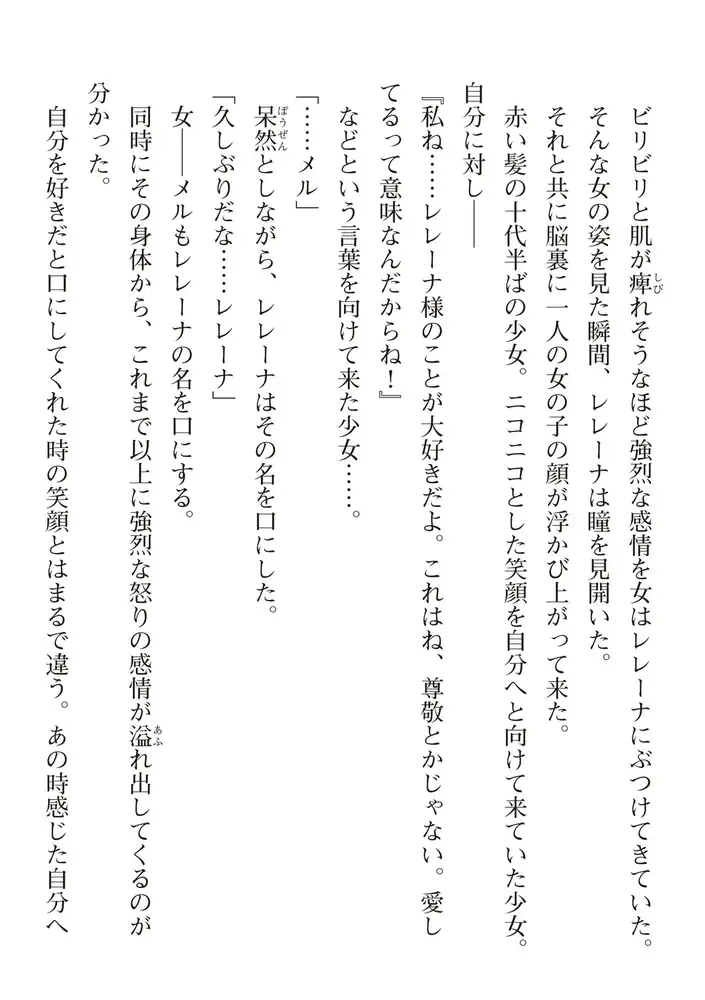 ビリビリと肌が痺れそうなほど強烈な感情を女はレレーナにぶつけてきていた。
そんな女の姿を見た瞬間、レレーナは瞳を見開いた。
それと共に脳裏に一人の女の子の顔が浮かび上がって来た。
赤い髪の十代半ばの少女。ニコニコとした笑顔を自分へと向けて来ていた少女。
自分に対し――
『私ね……レレーナ様のことが大好きだよ。これはね、尊敬とかじゃない。愛し
てるって意味なんだからね！』
などという言葉を向けて来た少女……。
「……メル」
呆然としながら、レレーナはその名を口にした。
「久しぶりだな……レレーナ」
女――メルもレレーナの名を口にする。
同時にその身体から、これまで以上に強烈な怒りの感情が溢れ出してくるのが
分かった。
自分を好きだと口にしてくれた時の笑顔とはまるで違う。あの時感じた自分へ